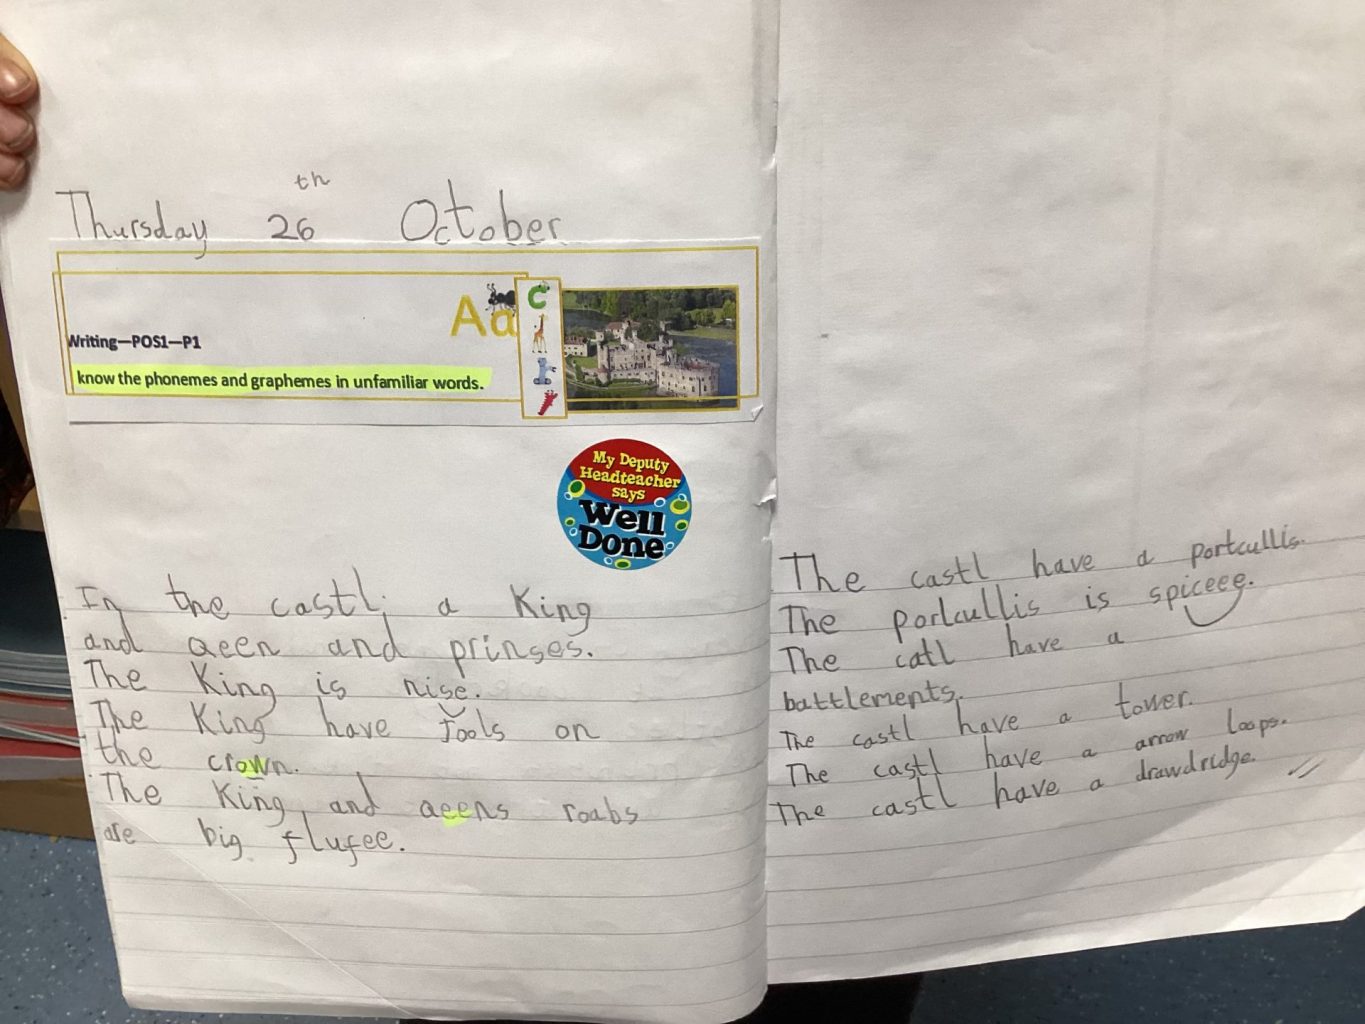 Thursday 26th October
Writing—POS1—P1
know the phonemes and graphemes in unfamiliar words.
Aa
c
My Deputy
Headteacher
says
Well
Done
In the castl a King
and qeen and prinses.
The King is nise.
The King have jools on
the crown.
The King and qeens roabs
are big flufee.
The castl have a portcullis.
The portcullis is spiceee.
The catl have a
battlements.
The castl have a tower.
The castl have a arrow loops.
The castl have a drawdridge.